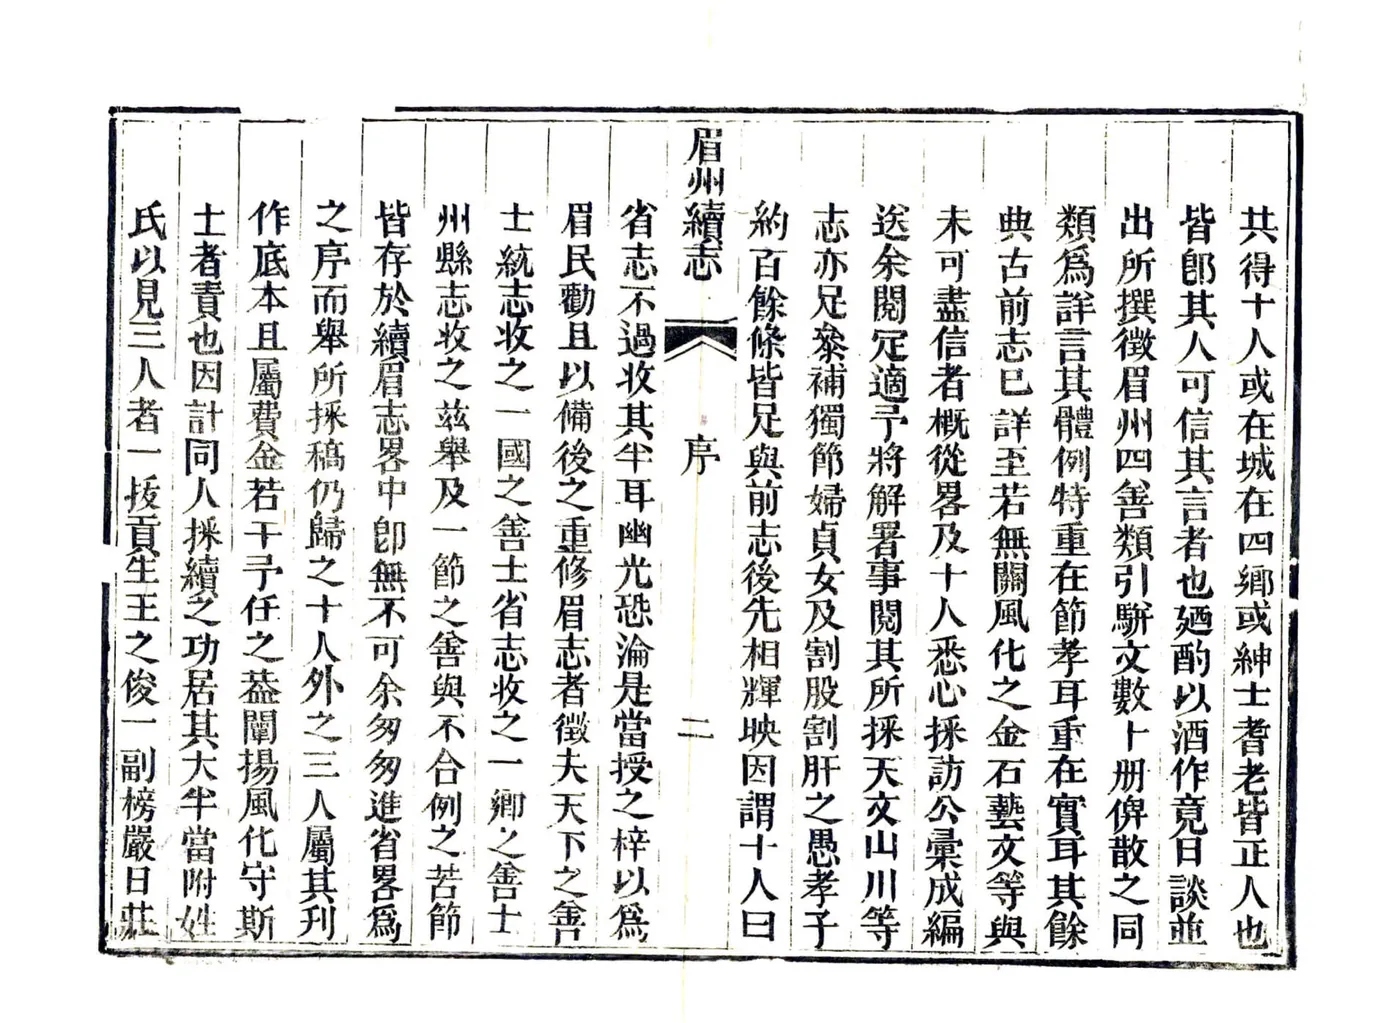 共得十人或在城在四鄉或紳士耆老皆正人也
皆卽其人可信其言者也廼酌以酒作竟日談並
出所撰徵眉州四善類引駢文數十册俾散之同
類爲詳言其體例特重在節孝耳重在實耳其餘
典古前志已詳至若無關風化之金石藝文等與
未可盡信者概從畧及十人悉心採訪公彙成編
送余閱定適予將解署事閱其所採天文山川等
志亦足叅補獨節婦貞女及割股割肝之愚孝子
約百餘條皆足與前志後先相輝映因謂十人曰
眉州續志 序 二
省志不過收其半耳幽光恐淪是當授之梓以爲
眉民勸且以備後之重修眉志者徵夫天下之善
士統志收之一國之善士省志收之一鄉之善士
州縣志收之茲舉及一節之善與不合例之苦節
皆存於續眉志畧中卽無不可余匆匆進省畧爲
之序而舉所採稿仍歸之十人外之三人屬其刋
作底本且屬費金若干予任之葢闡揚風化守斯
士者責也因計同人採續之功居其大半當附姓
氏以見三人者一拔貢生王之俊一副榜嚴日莊